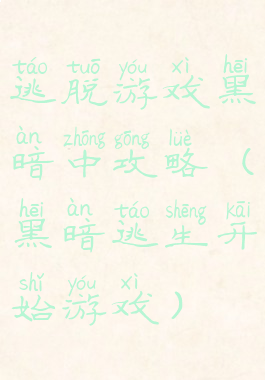 táo tuō yóu xì hēi
逃脱游戏黑
àn zhōng gōng lüè
暗中攻略（
hēi àn táo shēng kāi
黑暗逃生开
shǐ yóu xì
始游戏）